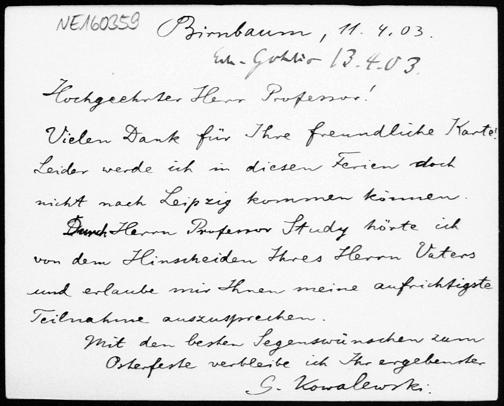 NE160359
Birnbaum, 11. 4. 03.
13.4.03.
Hochgeehrter Herr Professor!
Vielen Dank für Ihre freundliche Karte!
Leider werde ich in diesen Ferien doch
nicht nach Leipzig kommen können.
Durch Herrn Professor Study hörte ich
von dem Hinscheiden Ihres Herrn Vaters
und erlaube mir Ihnen meine aufrichtigste
Teilnahme auszusprechen.
Mit den besten Segenswünschen zum
Osterfeste verbleibe ich Ihr ergebenster
G. Kowalewski.